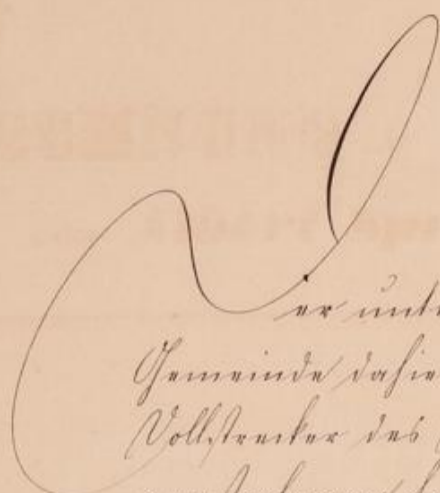 Der unte
Gemeinde dahie
Vollstrecker des